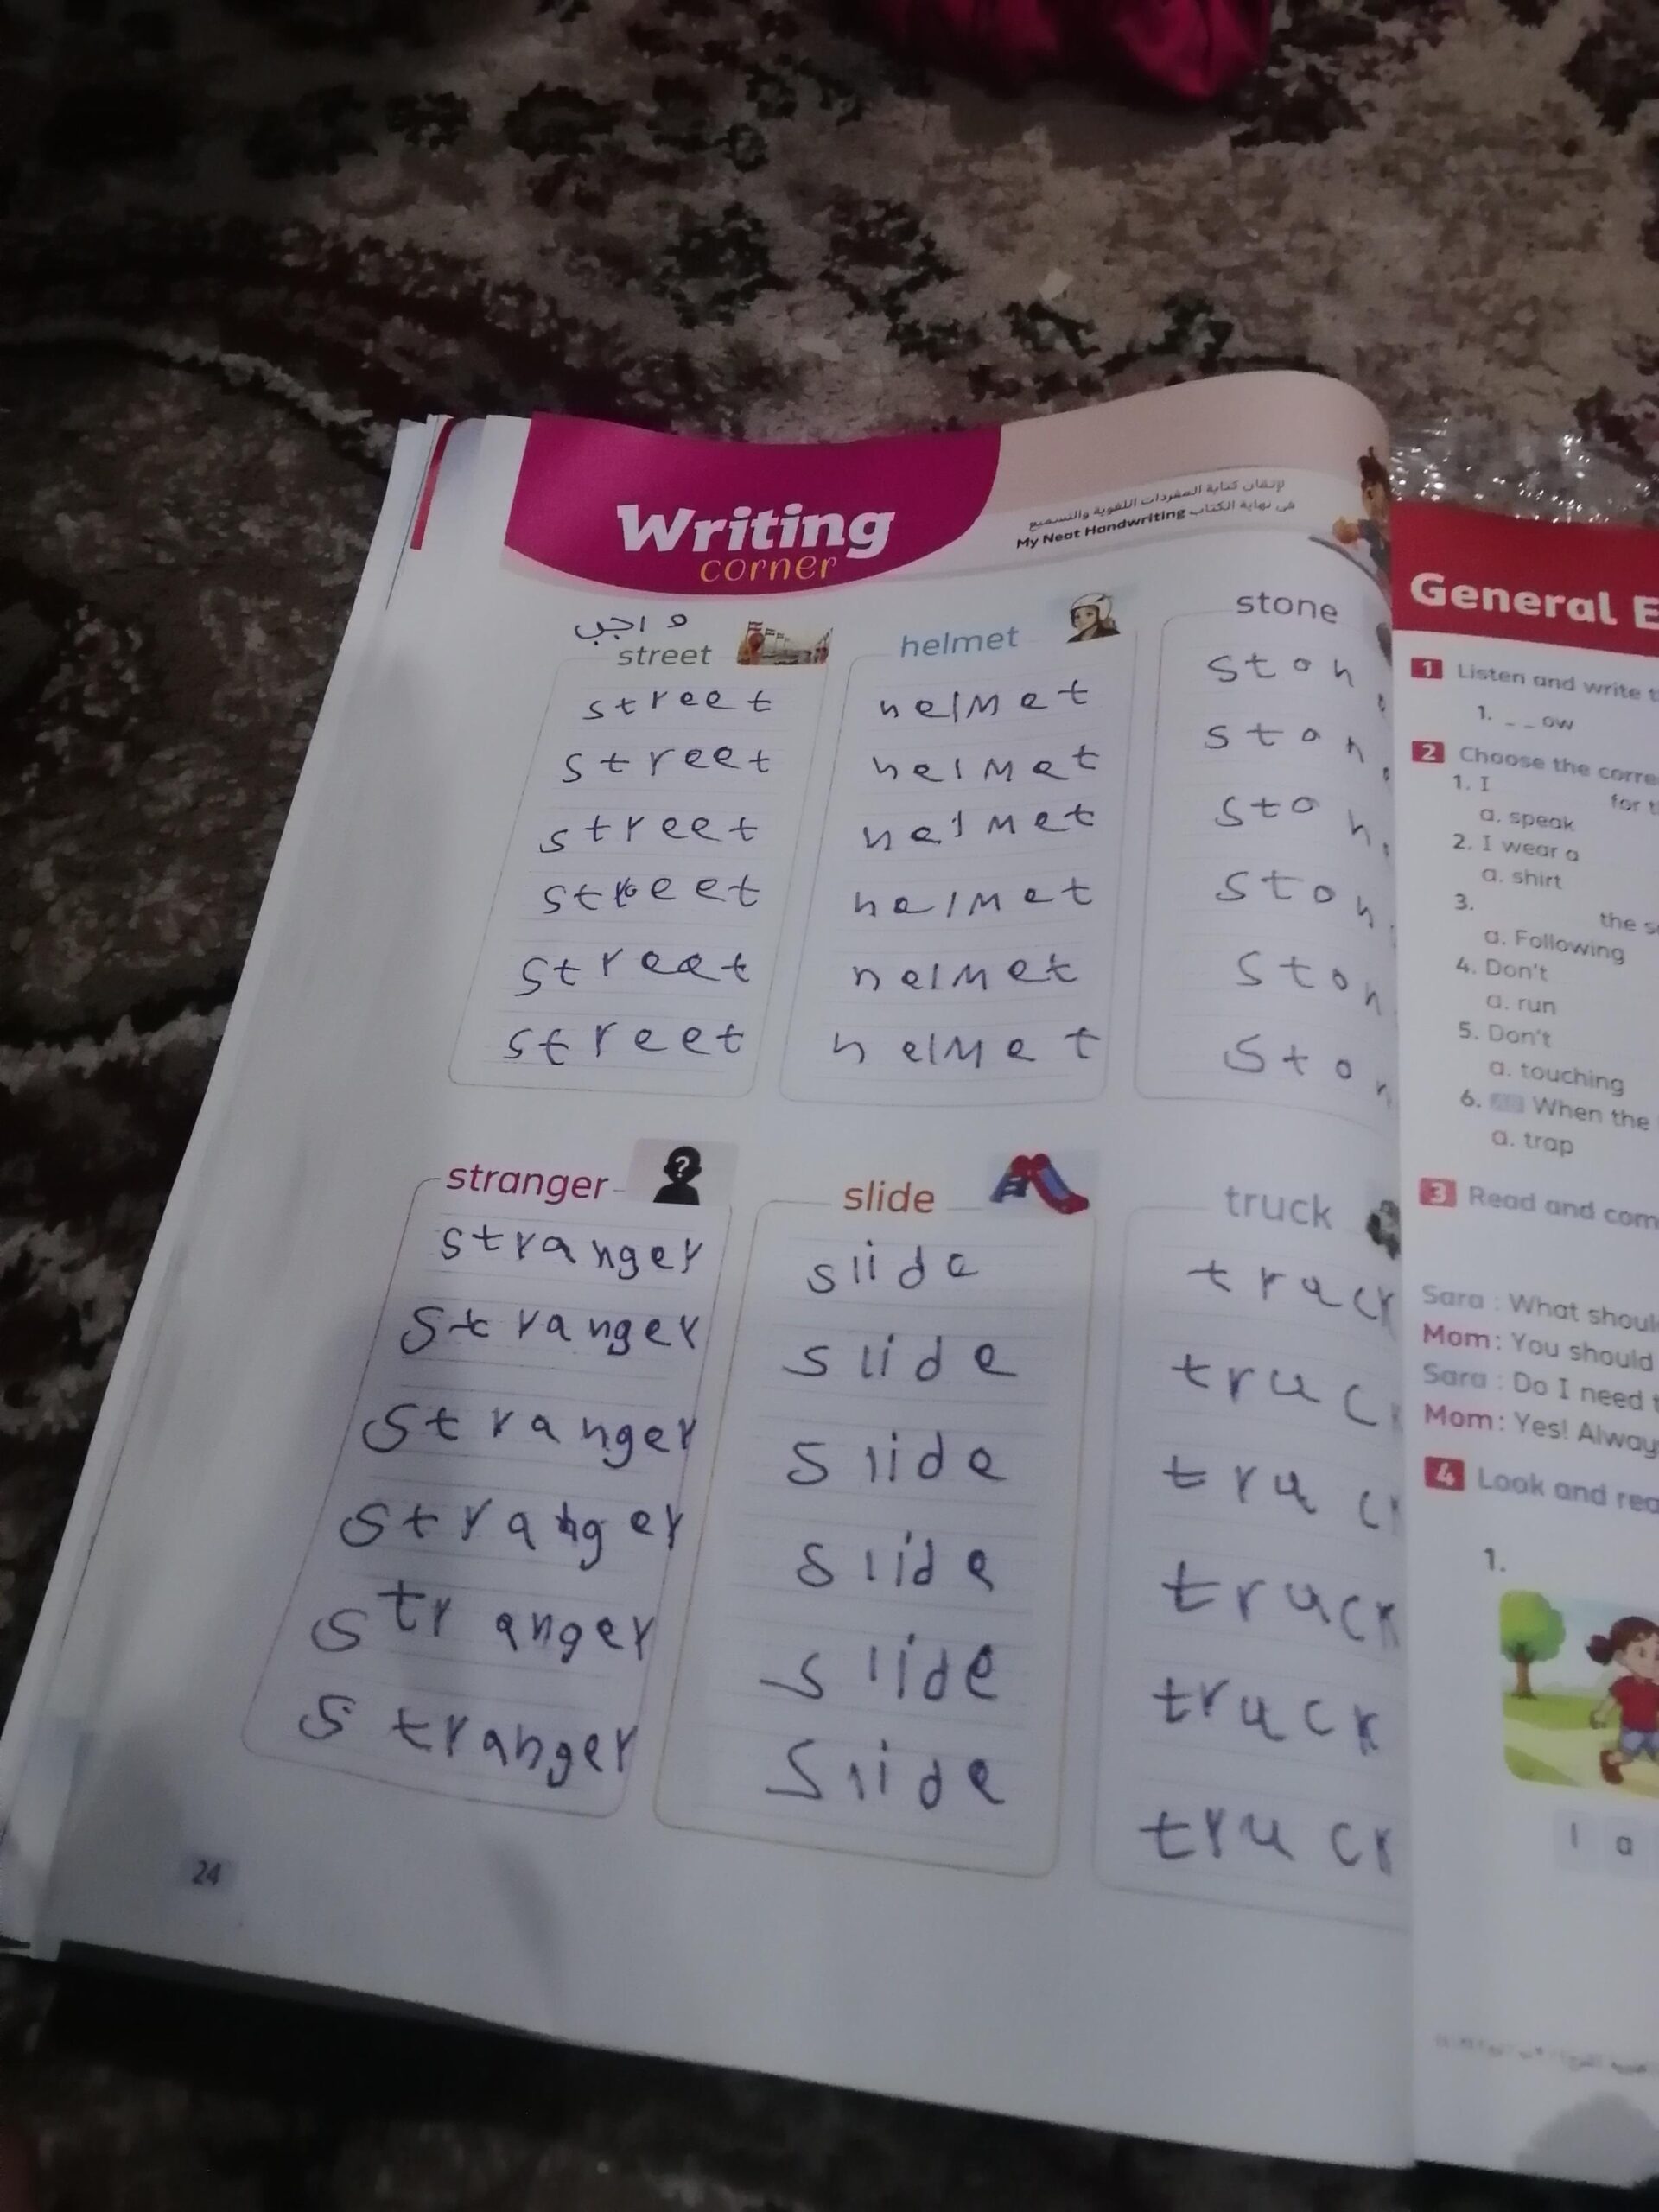 Writing
corner
لإتقان كتابة المفردات اللغوية والتسميع
فى نهاية الكتاب My Neat Handwriting
واجب
street
street
street
street
street
street
street
helmet
helmet
helmet
helmet
helmet
helmet
helmet
stone
ston
ston
ston
ston
ston
ston
stranger
stranger
stranger
stranger
stranger
stranger
stranger
slide
slide
slide
slide
slide
slide
slide
truck
truck
truc
truc
truck
truck
truck
24
General E
1 Listen and write t
1. _ _ ow
2 Choose the corre
1. I for t
a. speak
2. I wear a
a. shirt
3. the s
a. Following
4. Don't
a. run
5. Don't
a. touching
6. When the
a. trap
3 Read and com
Sara : What shoul
Mom : You should
Sara : Do I need t
Mom : Yes! Alway
4 Look and rea
1.
I a